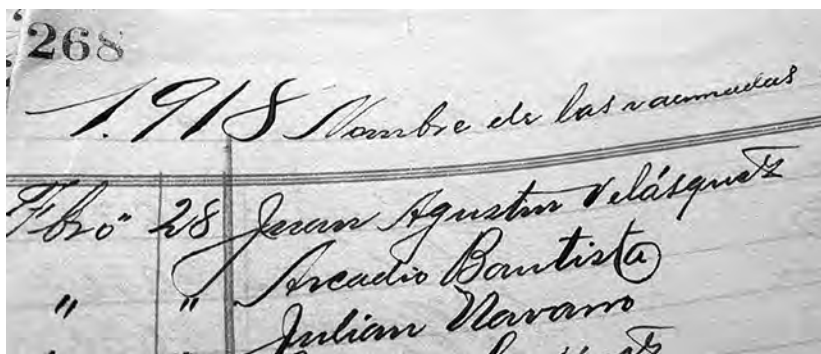 268
1.918 Nombre de las vacunadas
Fbro 28 Juan Agustin Velásquez
" " Arcadio Bautista
Julian Navarro